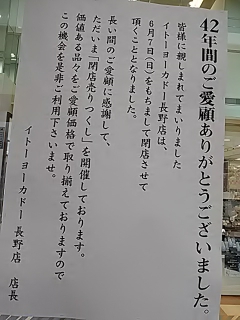 42年間のご愛顧ありがとうございました。
皆様に親しまれてまいりました
イトーヨーカドー長野店は、
6月7日(日)をもちまして閉店させて
頂くこととなりました。
長い間のご愛顧に感謝して、
ただいま「閉店売りつくし」を開催しております。
価値ある品々をご愛顧価格で取り揃えておりますので
この機会を是非ご利用下さいませ。
イトーヨーカドー 長野店 店長